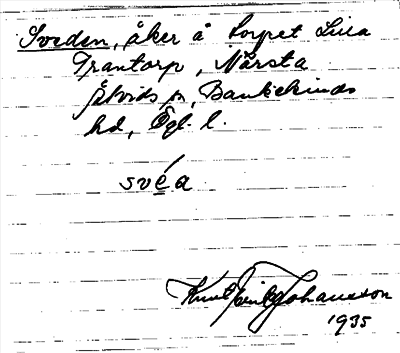 Sveden, åker å torpet Lilla
Grantorp, Närsta
Åtvids sn, Bankekinds
hd, Ögl. l.
svéa
Knut Johansson
1935